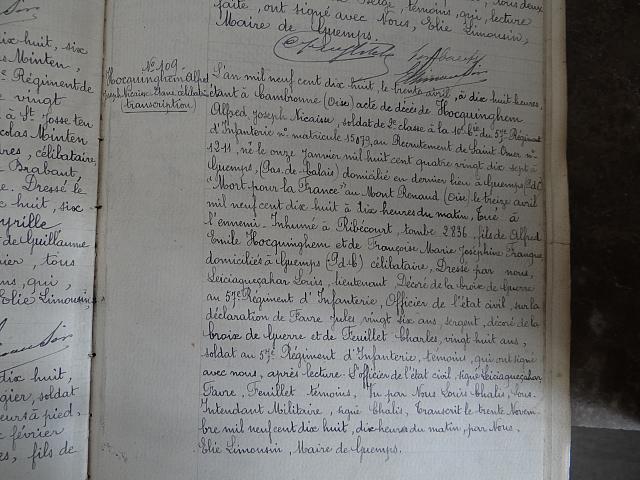 dix huit, six
Minten,
Régiment de
vingt
à St Josse ten
colas Minten
res, célibataire,
Brabant,
e. Dressé le
huit, six
yrille
de Guillaume
nier, tous
ns, qui,
Elie Limousin,
dix huit,
gier, soldat
eurs à pied,
février
es, fils de
tous deux
faite, ont signé avec Nous, Elie Limousin,
Maire de Guemps.
No 109
Hocquinghem Alfred
Joseph Nicaise célibataire
(transcription)
L'an mil neuf cent dix huit, le trente avril, à dix huit heures,
étant à Cambronne (Oise) acte de décès de Hocquinghem
Alfred, Joseph Nicaise, soldat de 2e classe à la 10e Cie du 57e Régiment
d'Infanterie no matricule 15079, au Recrutement de Saint-Omer no
1211, né le onze Janvier mil huit cent quatre vingt dix sept à
Guemps, (Pas-de-Calais) domicilié en dernier lieu à Guemps (P.d.C)
"Mort pour la France" au Mont Renaud (Oise) le treize avril
mil neuf cent dix huit à dix heures du matin, Tué à
l'ennemi. Inhumé à Ribécourt, tombe 2836, fils de Alfred
Emile Hocquinghem et de Françoise Marie Joséphine Franque
domiciliés à Guemps (P.d.C) célibataire, Dressé par nous,
Leiciagueçahar Louis, lieutenant, Décoré de la Croix de Guerre
au 57e Régiment d'Infanterie, Officier de l'état civil, sur la
déclaration de Favre Jules, vingt six ans, sergent, décoré de la
Croix de Guerre et de Feuillet Charles, vingt huit ans,
soldat au 57e Régiment d'Infanterie, témoins, qui ont signé
avec nous, après lecture. L'officier de l'état civil, signé Leiciagueçahar
Favre, Feuillet témoins, Vu par Nous Louis Chalis, Sous-
Intendant Militaire, signé Chalis, Transcrit le trente Novem-
bre mil neuf cent dix huit, dix heures du matin, par Nous,
Elie Limousin, Maire de Guemps.